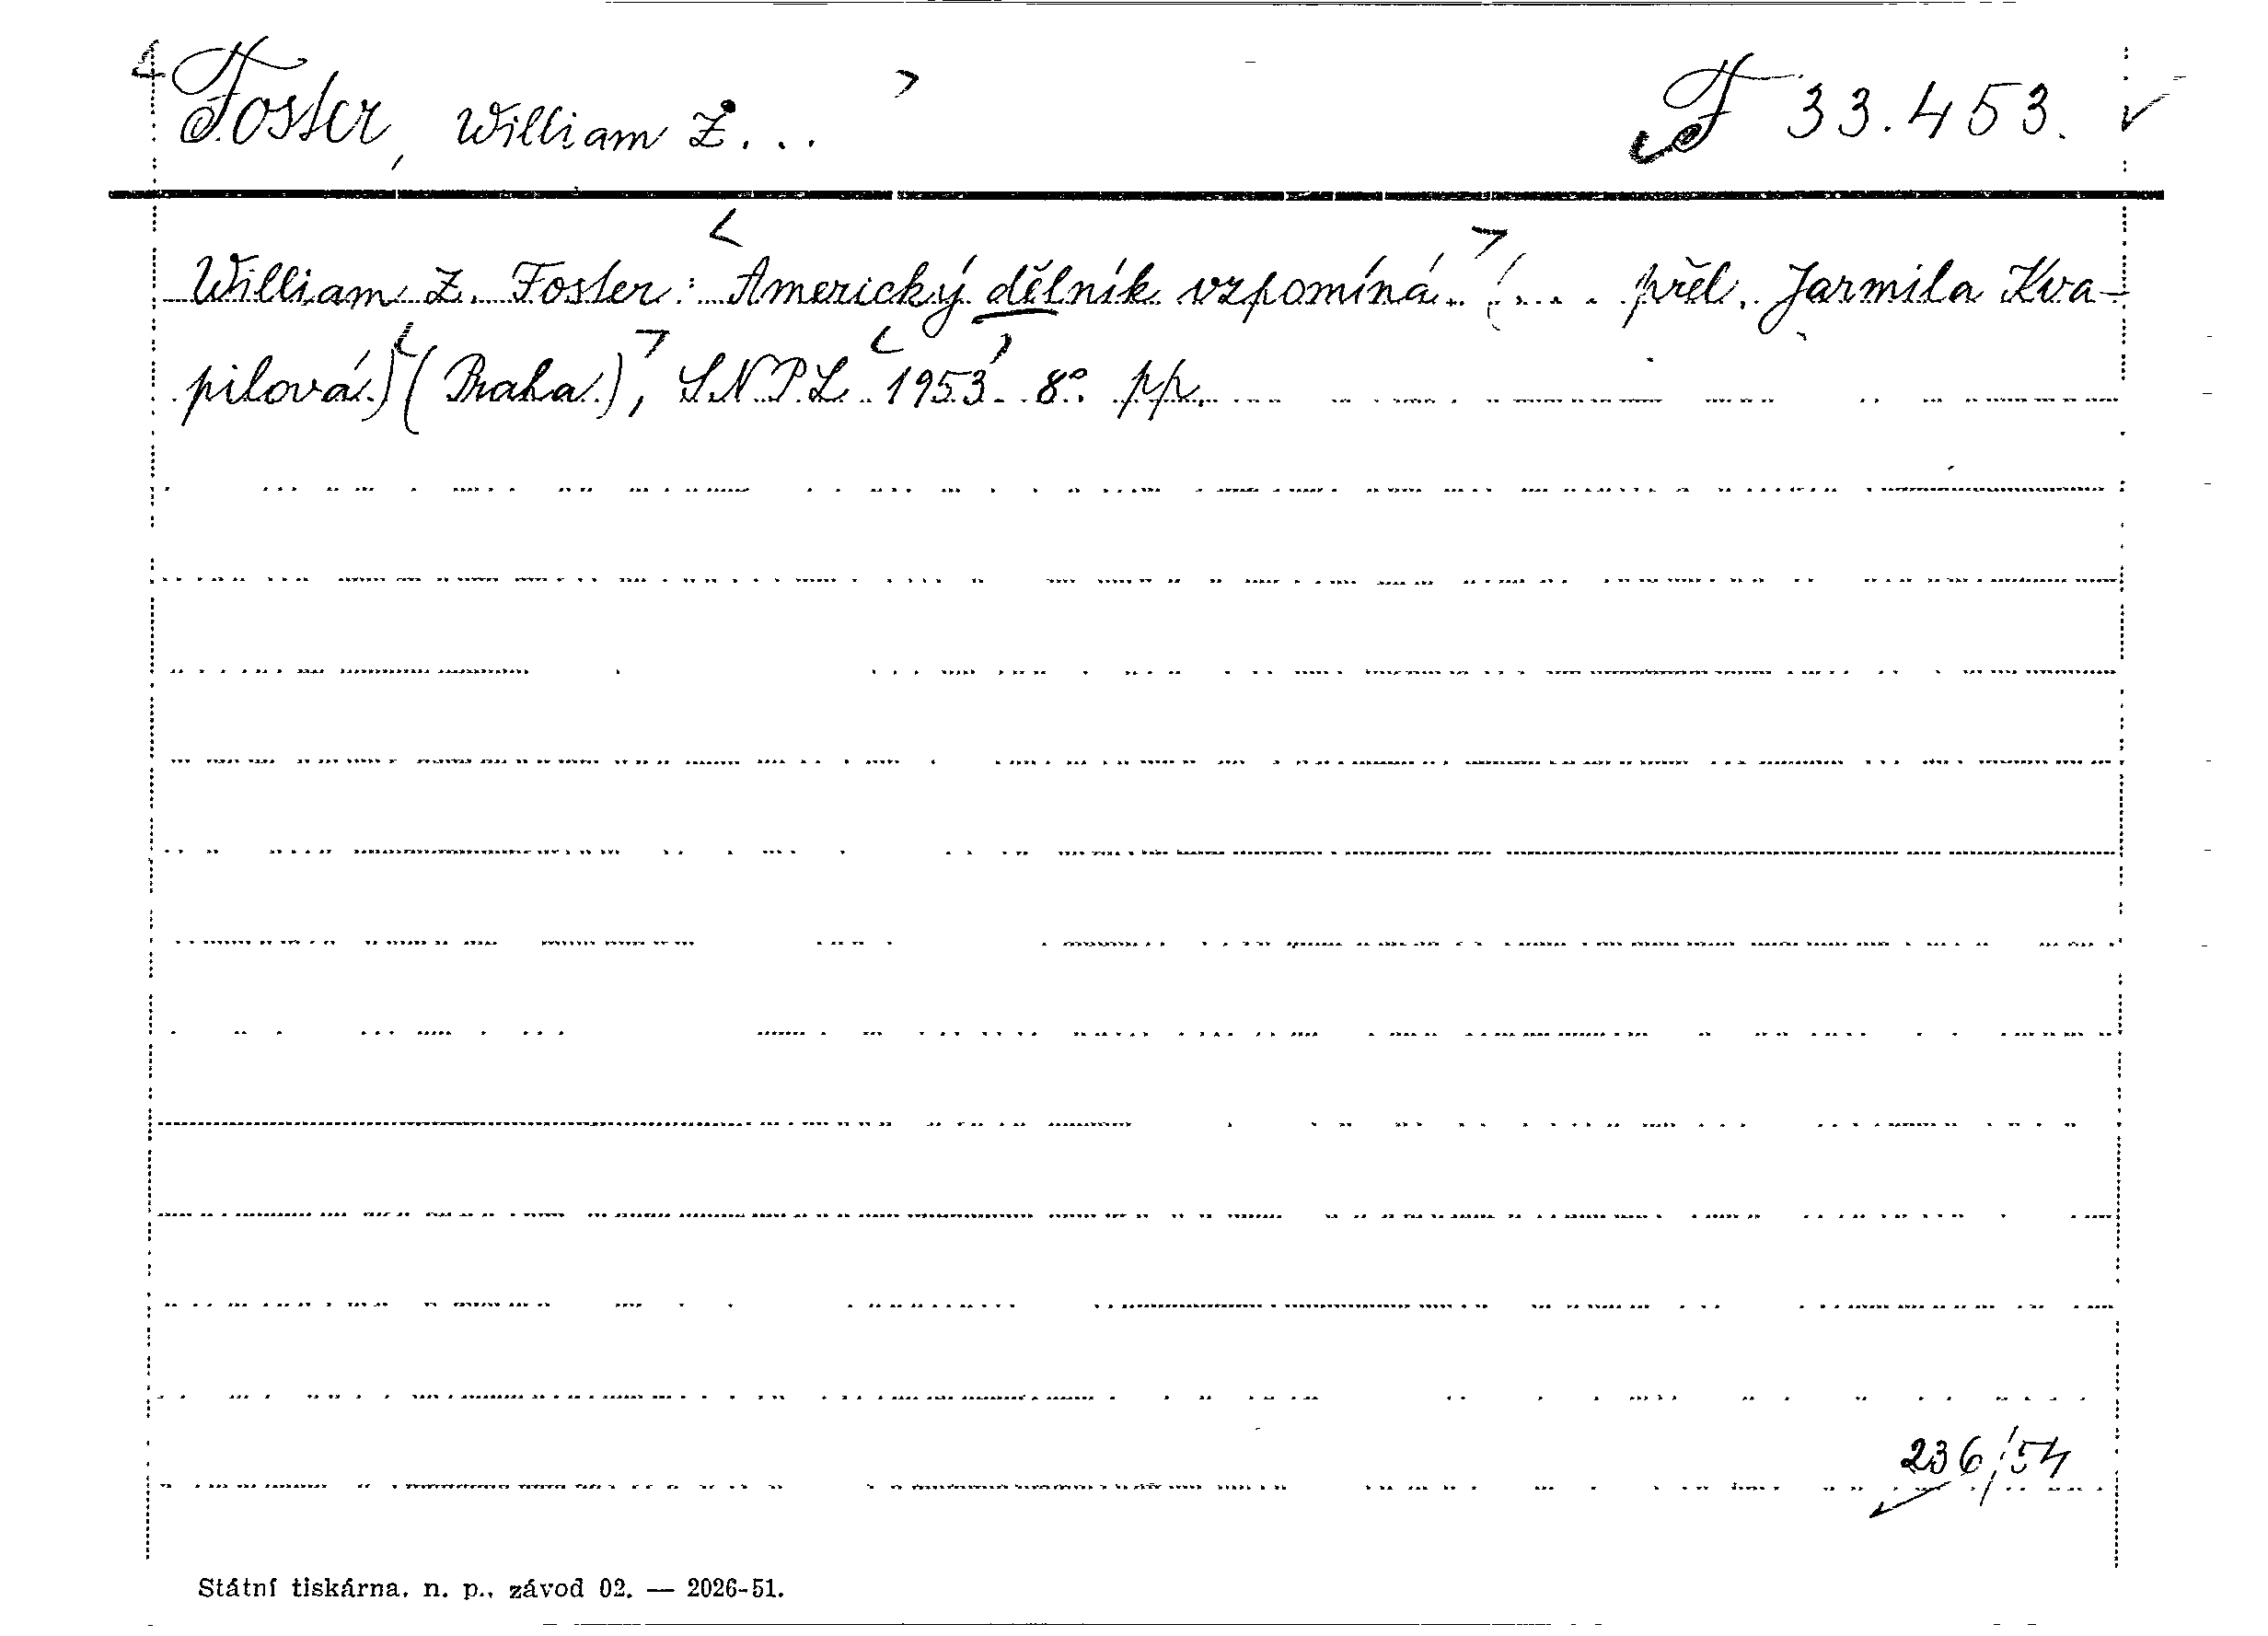 Foster, William Z... F 33.453.
William Z. Foster: Americký dělník vzpomíná. (... přel. Jarmila Kva-
pilová.) (Praha), SNPL 1953. 8°. pp.
236/54
Státní tiskárna, n. p., závod 02. — 2026-51.